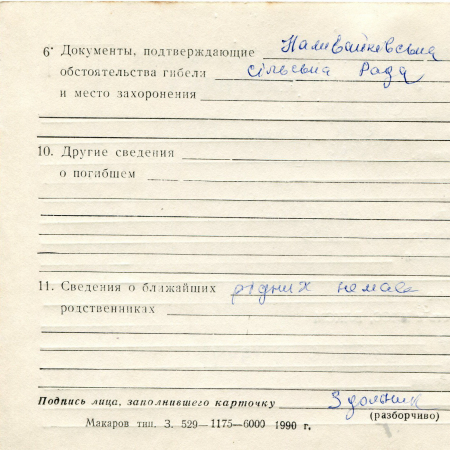 6· Документы, подтверждающие Наливайковська
обстоятельства гибели сільська Рада
и место захоронения
10. Другие сведения
о погибшем
11. Сведения о ближайших рідних немає
родственниках
Подпись лица, заполнившего карточку Здольник
(разборчиво)
Макаров тип. З. 529—1175—6000 1990 г.